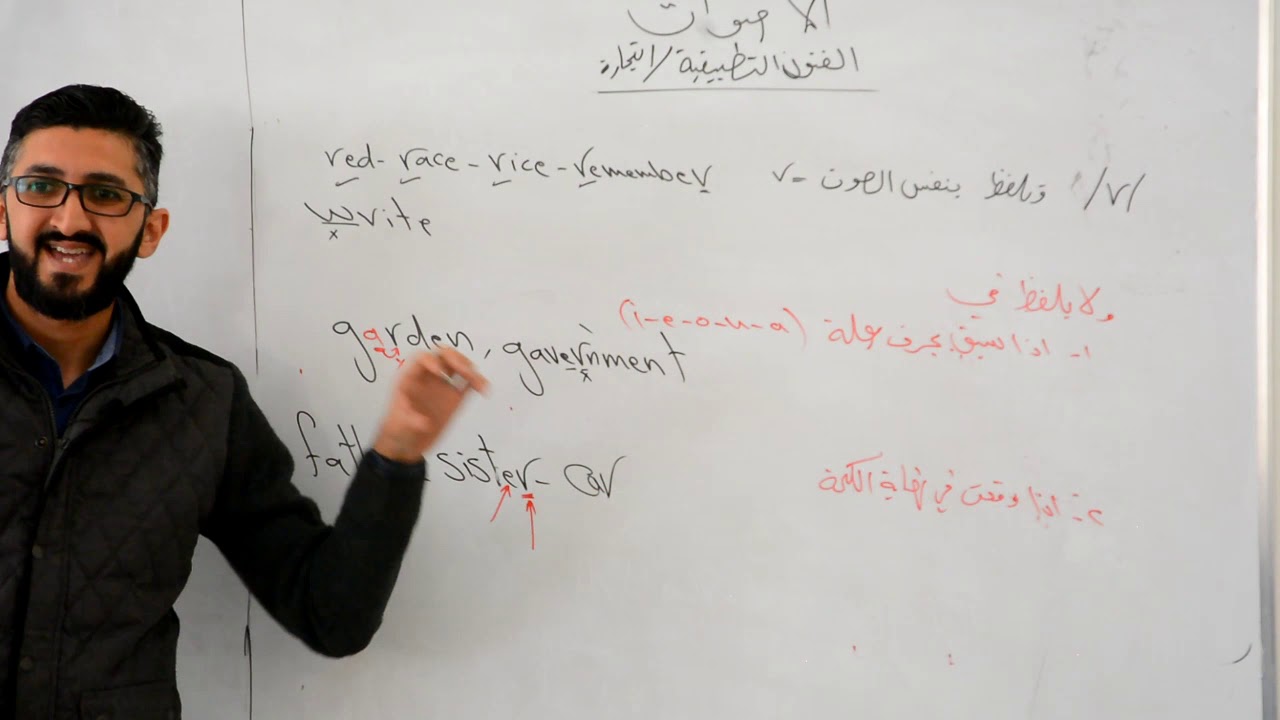 الاصوات
الفنون التطبيقية / التجارة
/r/ وتلفظ بنفس الصوت = r red - race - rice - remember
write
ولا يلفظ في
1- اذا سبق بحرف علة (i-e-o-u-a) garden, gavernment
2- اذا وقعت في نهاية الكلمة sister - car